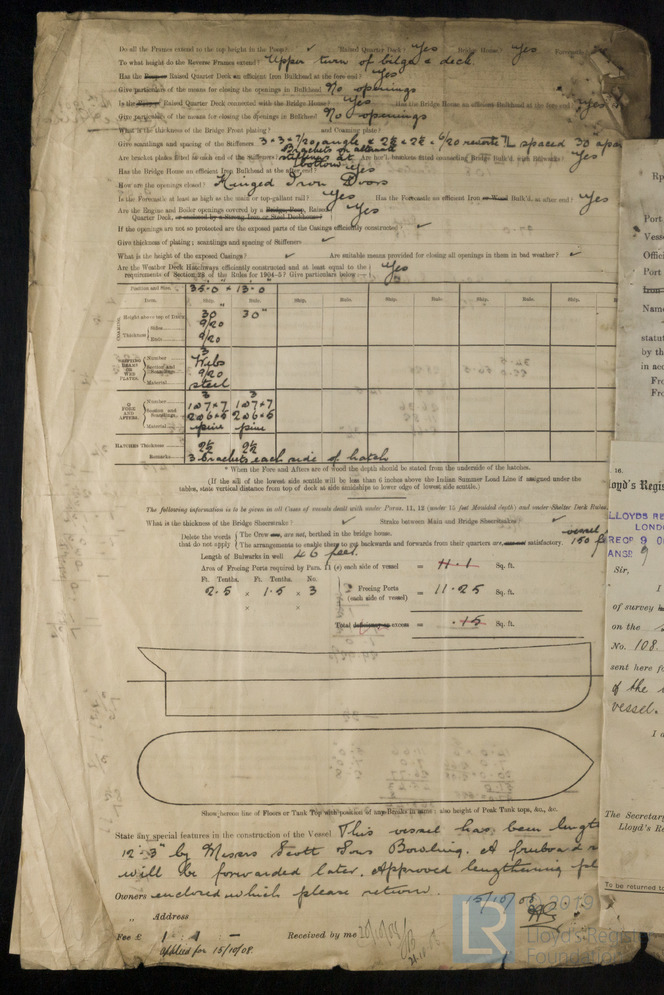 Do all the Frames extend to the top height in the Poop? ✓ Raised Quarter Deck? Yes Bridge House? Yes Forecastle
To what height do the Reverse Frames extend? Upper turn of bilge & deck.
Has the Poop or Raised Quarter Deck an efficient Iron Bulkhead at the fore end? Yes
Give particulars of the means for closing the openings in Bulkhead No openings
Is the Poop or Raised Quarter Deck connected with the Bridge House? Yes Has the Bridge House an efficient Bulkhead at the fore end Yes
Give particulars of the means for closing the openings in Bulkhead No openings
What is the thickness of the Bridge Front plating? and Coaming plate?
Give scantlings and spacing of the Stiffeners 3 × 3 × 7/20 angle & 2½ × 2½ × 6/20 spaced 30" apart
Brackets on alternate
Are bracket plates fitted at each end of the Stiffeners? stiffeners at bottom Are hor'l. fitted connecting Bridge Bulk'd. with Bulwarks? Yes
Has the Bridge House an efficient Iron Bulkhead at the after end? Yes
How are the openings closed? Hinged Iron Doors
Is the Forecastle at least as high as the main or top-gallant rail? Yes Has the Forecastle an efficient Iron or Wood Bulk'd. at after end? Yes
Are the Engine and Boiler openings covered by a Bridge, Poop, Raised
Quarter Deck, or enclosed by a Strong Iron or Steel Deckhouse? Yes
If the openings are not so protected are the exposed parts of the Casings efficiently constructed? ✓
Give thickness of plating; scantlings and spacing of Stiffeners ✓
What is the height of the exposed Casings? ✓ Are suitable means provided for closing all openings in them in bad weather? ✓
Are the Weather Deck Hatchways efficiently constructed and at least equal to the
requirements of Section 28 of the Rules for 1904-5? Give particulars below Yes
Position and Size. 35·0 × 13·0
Item. Ship. Rule. Ship. Rule. Ship. Rule. Ship. Rule. Ship.
Height above top of Deck 30" 30"
Thickness Sides 9/20
Ends 9/20
Number 3
Section and Scantlings Webs 9/20
Material steel
FORE AND AFTERS. Number 3 3
Section and Scantlings 1 @ 7×7 1 @ 7×7
2 @ 6×6 2 @ 6×6
Material pine pine
HATCHES Thickness 2½ 2½
Remarks 3 brackets each side of hatch
* When the Fore and Afters are of wood the depth should be stated from the underside of the hatches.
(If the sill of the lowest side scuttle will be less than 6 inches above the Indian Summer Load Line if assigned under the
tables, state vertical distance from top of deck at side amidships to lower edge of lowest side scuttle.)
The following information is to be given in all Cases of vessels dealt with under Paras. 11, 12 (under 15 feet Moulded depth) and under Shelter Deck Rules.
What is the thickness of the Bridge Sheerstrake? ✓ Strake between Main and Bridge Sheerstrakes? ✓
Delete the words that do not apply The Crew are, are not, berthed in the bridge house. vessel
The arrangements to enable them to get backwards and forwards from their quarters are, are not satisfactory. 150 f
Length of Bulwarks in well 46 feet.
Area of Freeing Ports required by Para. 11 (e) each side of vessel = 11·1 Sq. ft.
Ft. Tenths. Ft. Tenths. No.
2·5 × 1·5 × 3 Freeing Ports (each side of vessel) = 11·25 Sq. ft.
× ×
Total deficiency or excess = ·15 Sq. ft.
Show hereon line of Floors or Tank Top with position of any Breaks in same: also height of Peak Tank tops, &c., &c.
State any special features in the construction of the Vessel This vessel has been length
12'-3" by Messrs Scott Sons Bowling. A freeboard
will be forwarded later. Approved lengthening pl
enclosed which please return.
Owners 15/10/08
" Address
Fee £ Received by me 20/10/08
applied for 15/10/08.
LR 2019
Lloyd's Register
Foundation
Port
Vesse
Offici
Port
Name
statut
by th
in acc
Fro
Fro
16.
loyd's Regis
LLOYDS RE
LONDO
RECP 9 O
ANSR 9
Sir,
of survey
on the
No. 108.
sent here fo
of the
vessel.
The Secretar
Lloyd's Re
To be returned to